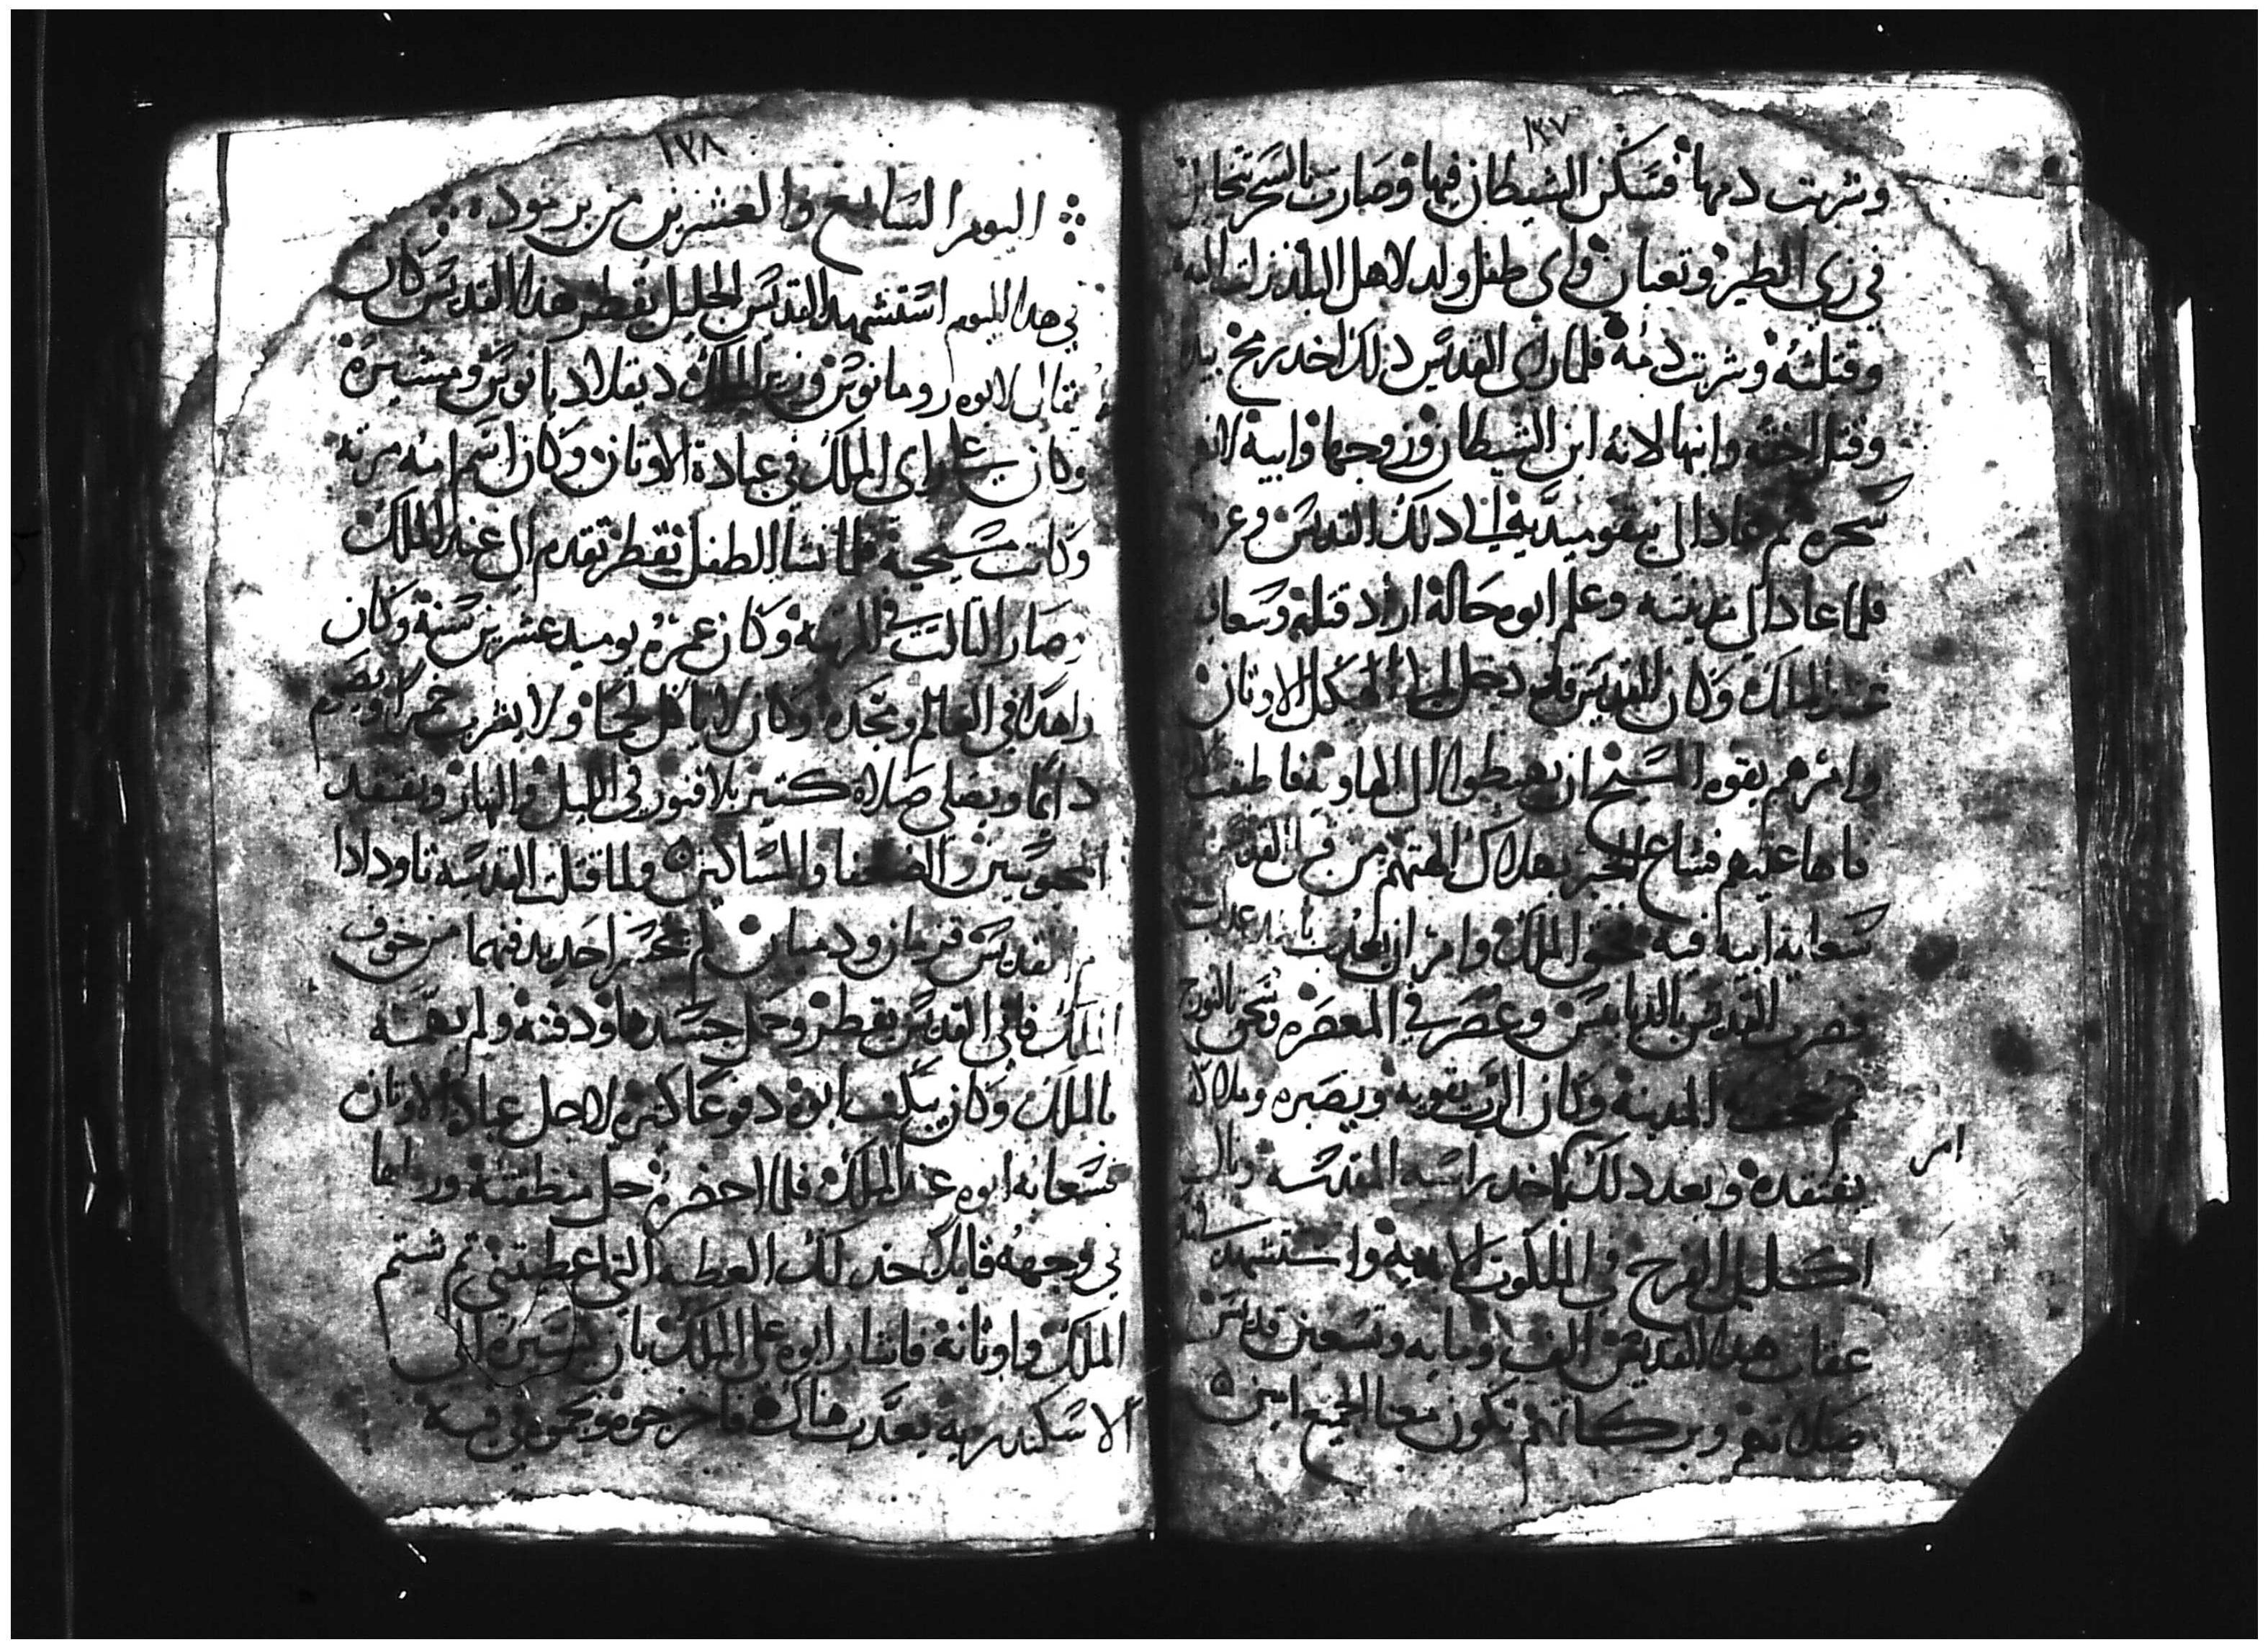 ١٣٧
وشربت دمها فسكن الشيطان فيها وصارت بالسحر تتخايل
في زي الطير وتعبان واي طفل ولد لاهل البلد نزلت اليه
وقتلته وشربت دمه فلما راى القديس ذلك اخد رمح بيده
وقتل اخته وابنها لانه ابن الشيطان وزوجها وابيه لانهم
سحره ثم عاد الى نيقوميدية الى ذلك القديس وعز
فلما عاد الى مدينته وعلم ابوه حاله اراد قتله وسعا به
عند الملك وكان القديس قد دخل الى هيكل الاوتان
وامرهم بقوه المسيح ان يهبطوا الى الهاويه فاطبقت
فاها عليهم فشاع الخبر بهلاك الهتهم من قبل القديس
سعاية ابيه فيه فحنق الملك وامر ان يعدب باشد عداب
فضرب القديس بالدبابيس وعصر في المعصره وسحق بالنورج
ثم المدينة وكان الرب يقويه ويصبره وملاكه
يفتقده وبعد ذلك اخد راسه المقدسه ونال
امر
اكليل الفرح في الملكوت الابديه واستشهد
عقاب هدا القديس الف ومايه وتسعين قديس
صلاتهم وبركاتهم تكون معنا الجميع امين
١٣٨
اليوم السابع والعشرين من برموده
في هدا اليوم استشهد القديس الجليل بقطر هدا القديس كان
يقال لابوه رومانوس وزير الملك ديقلاديانوس ومشيره
وكان على راى الملك في عبادة الاوتان وكان اسم امه مرته
وكانت مسيحية فلما نشا الطفل بقطر تقدم الى عند الملك
وصار التالت في المرتبه وكان عمره يوميد عشرين سنة وكان
زاهدا في العالم ومجده وكان لا ياكل لحما ولا يشرب خمرا ويصم
دايما ويصلي صلاه كتير بلا فتور في الليل والنهار ويفتقد
المحبوسين والضعفا والمساكين ولما قتلت القديسه تاودادا
ام القديس قزمان ودميان لم يجسر احد يدفنها من خوف
الملك فاتى القديس بقطر وحمل جسدها ودفنه ولم يهمه
بالملك وكان يبكت ابوه دفوعا كتيره لاجل عبادة الاوتان
فسعا به ابوه عند الملك فلما احضره حل منطقته ورماها
في وجهه قايلا خد لك العطيه التي اعطيتني ثم شتم
الملك واوثانه فاشار ابوه على الملك بان يسيره الى
الاسكندريه يعدب هناك فاخرجوه